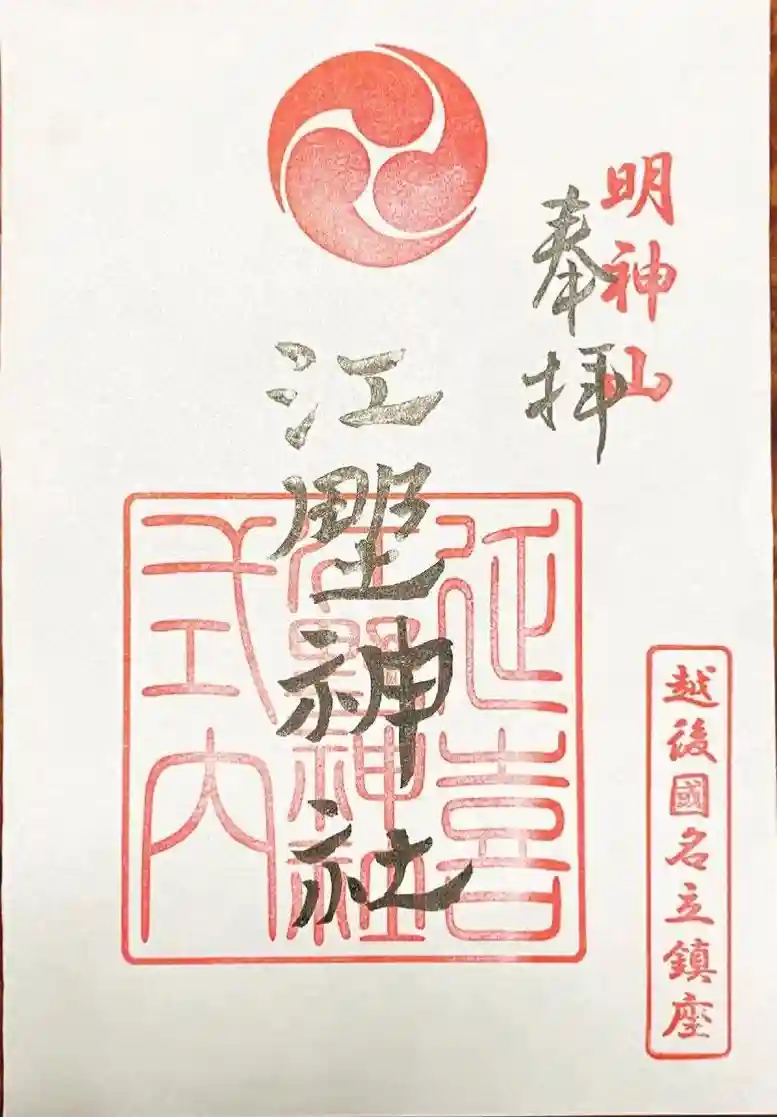 明神山
奉拝
江野神社
延喜
江野神社
式内
越後國名立鎮座